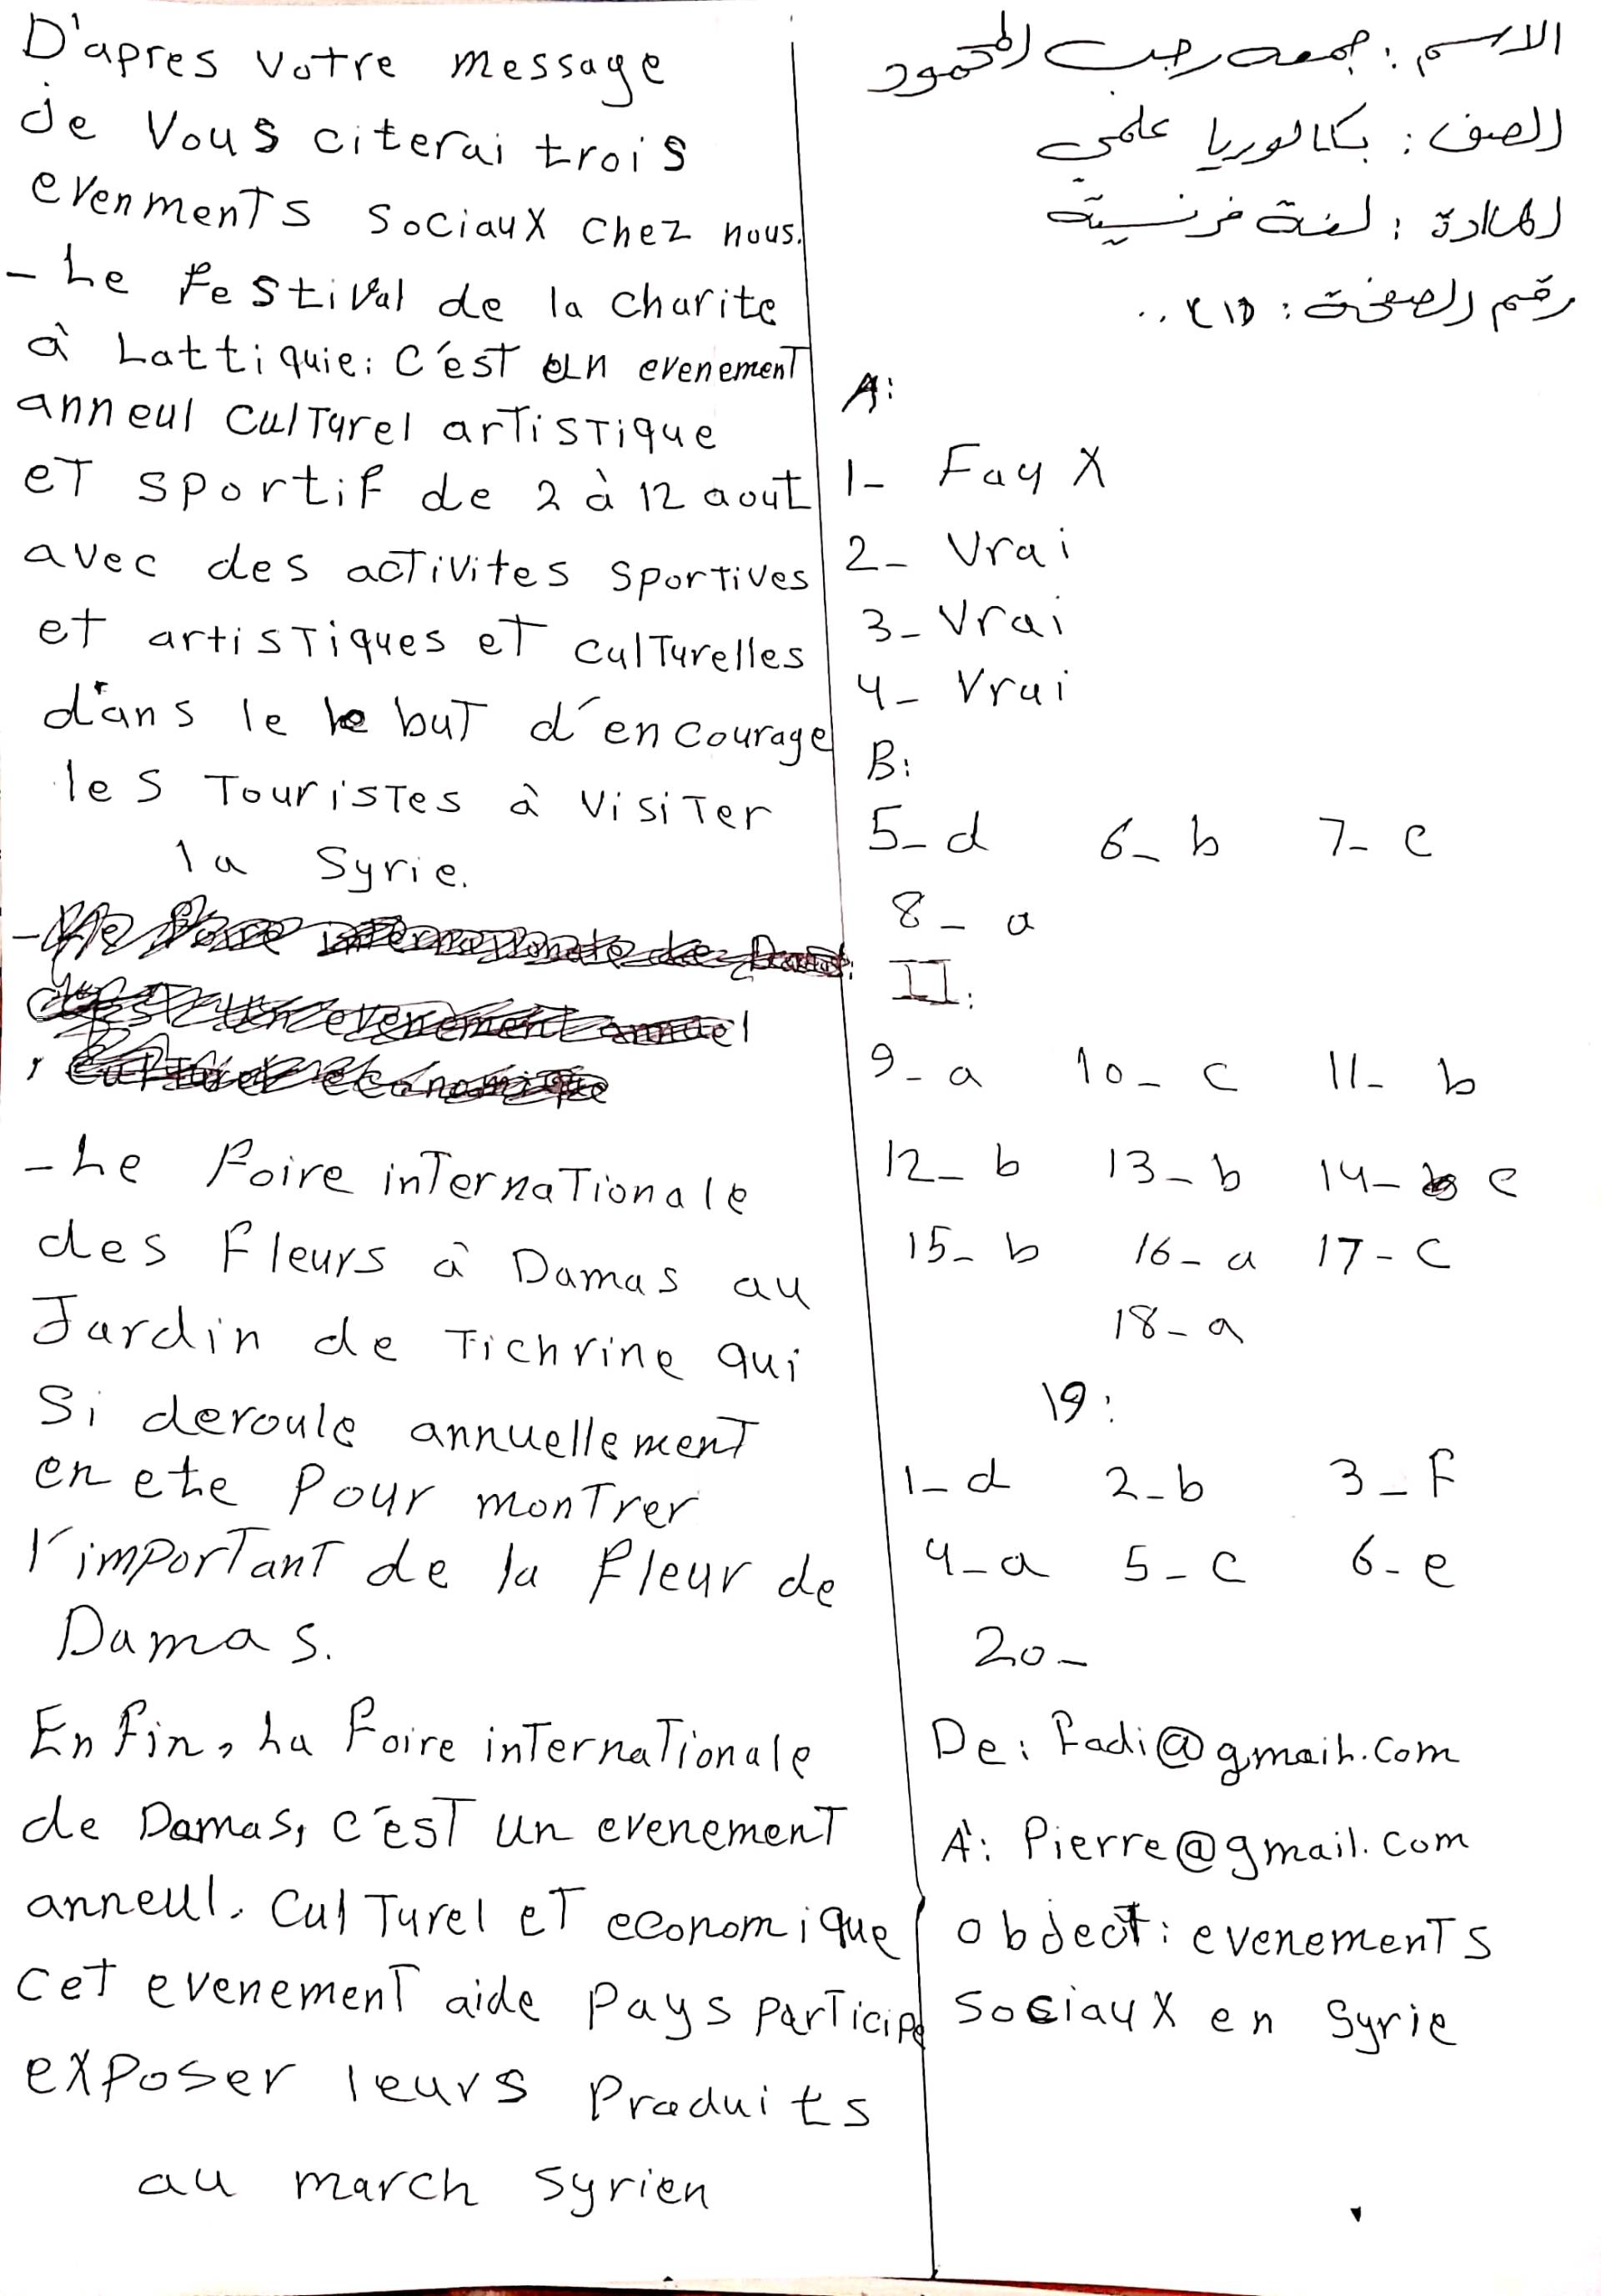 الاسم : جمعه رجب المحمود
الصف : بكالوريا علمي
المادة : لغة فرنسية
رقم الصفحة : (١) ..
A:
1- Faux
2- Vrai
3- Vrai
4- Vrai
B:
5- d 6- b 7- c
8- a
II:
9- a 10- c 11- b
12- b 13- b 14- c
15- b 16- a 17- c
18- a
19:
1- d 2- b 3- F
4- a 5- c 6- e
20-
De: Fadi@gmaih.com
À: Pierre@gmail.com
object: evenements
Sociaux en Syrie
D'apres votre message
je Vous citerai trois
evenments Sociaux chez nous.
- Le festival de la charite
à Lattiquie: C'est un evenement
anneul culturel artistique
et sportif de 2 à 12 aout
avec des activites sportives
et artistiques et culturelles
d'ans le but d'encourage
les Touristes à visiter
la Syrie.
- Le Foire internationale
des Fleurs à Damas au
Jardin de Tichrine qui
Si deroule annuellement
en ete Pour montrer
l'important de la fleur de
Damas.
En fin, La Foire internationale
de Damas, c'est un evenement
anneul. Culturel et economique
cet evenement aide Pays particip
exposer leurs Produits
au march Syrien